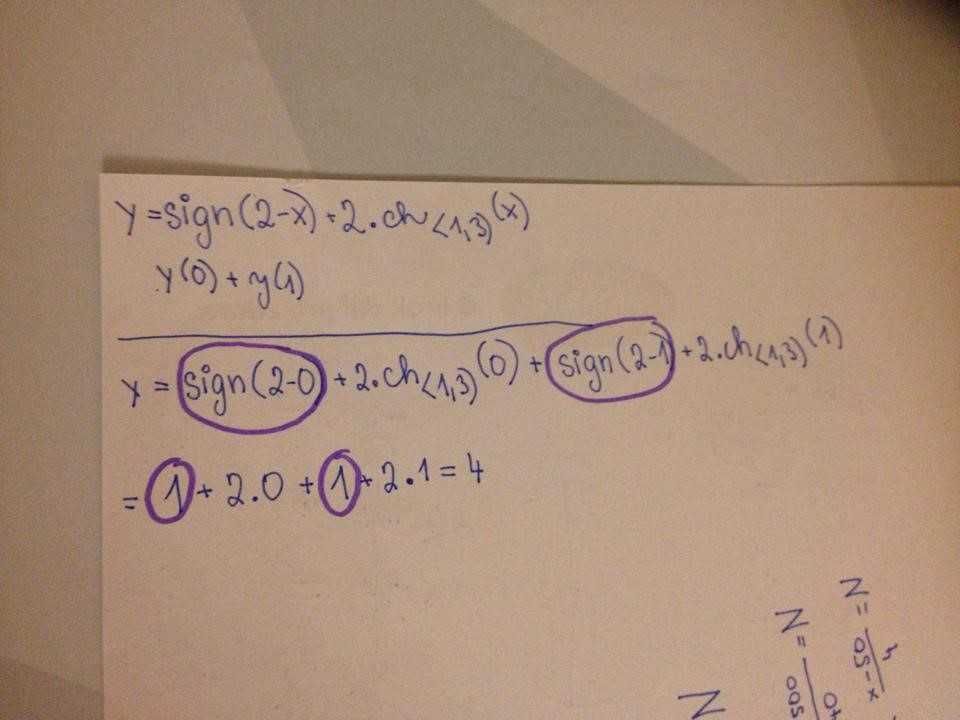 y = sign(2-x) + 2.ch⟨1,3)(x)
y(0) + y(1)
y = sign(2-0) + 2.ch⟨1,3)(0) + sign(2-1) + 2.ch⟨1,3)(1)
= 1 + 2.0 + 1 + 2.1 = 4
N =
N =
N